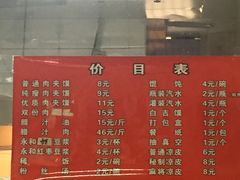 价目表
普通肉夹馍 8元
纯瘦肉夹馍 9元
优质肉夹馍 11元
双份肉 15元
腊汁油 15元/斤
腊汁肉 46元/斤
永和豆浆 3元/杯
永和红枣豆浆 4元/杯
稀饭 2元/碗
粉丝汤
馄饨 4元/碗
瓶装汽水 2元/瓶
罐装汽水 4元/瓶
白吉馍 1元/个
打包盒 1元/个
餐纸 1元/包
抽真空 1元/个
普通凉皮 6元
秘制凉皮 8元
麻将凉皮 8元